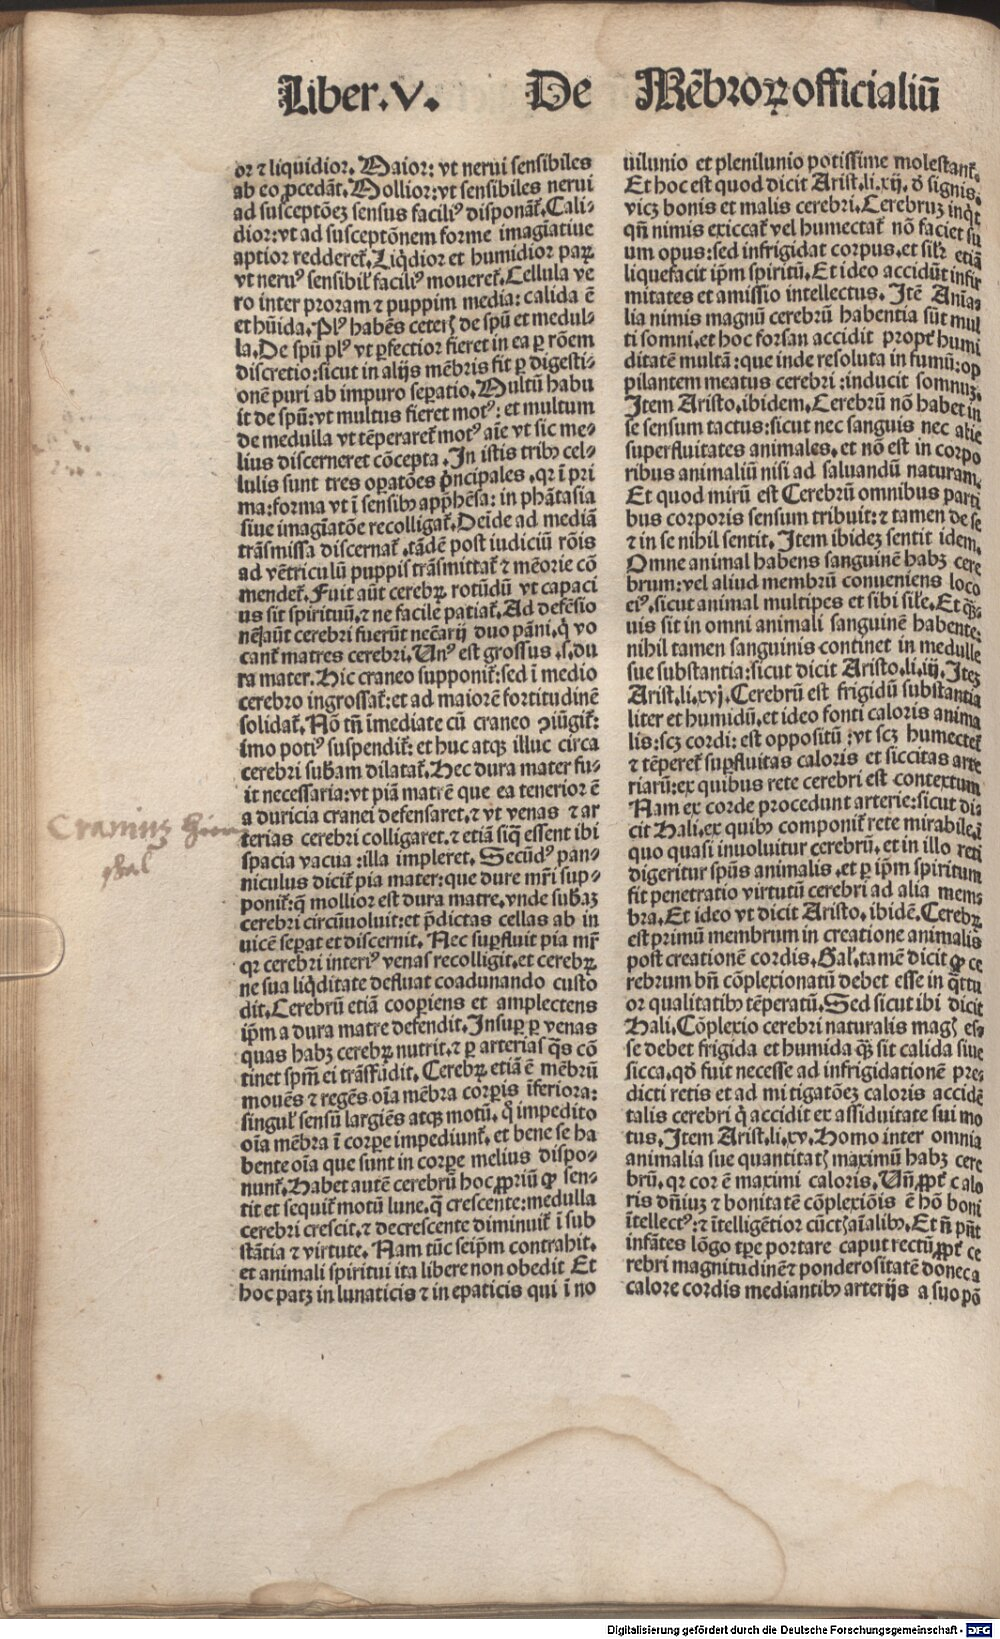 Liber.V. De Mēbroꝝ officialiū
or ⁊ liquidior. Maior: vt nerui sensibiles
ab eo ꝓcedāt. Mollior: vt sensibiles nerui
ad susceptōeꝫ sensus faciliꝰ disponāt̄. Cali-
dior: vt ad susceptōnem forme imagīatiue
aptior reddereť. Liq̇dior et humidior paꝝ
vt neruꝰ sensibil̓ faciliꝰ mouereť. Cellula ve
ro inter proram ⁊ puppim media: calida ē
et hūida. Plꝰ habēs ceteris de spū et medul-
la. De spū plꝰ vt ꝑfectior fieret in ea ꝑ rōem
discretio: sicut in alijs mēbris fit ꝑ digesti-
onē puri ab impuro seꝑatio. Multū habu
it de spū: vt multus fieret motꝰ: et multum
de medulla vt tēperareť motꝰ aīe vt sic me-
lius discerneret cōcepta. In istis tribꝰ cel-
lulis sunt tres oꝑatōes pͥncipales. qr ī pri
ma: forma vt ī sensibꝰ apꝓhēsa: in phātasia
siue imagīatōe recolligať. Deīde ad mediā
trāsmissa discernať. tādē post iudiciū rōis
ad vētriculū puppis trāsmittať ⁊ mēorie cō
mendeť. Fuit aūt cerebꝝ rotūdū vt capaci
us sit spirituū. ⁊ ne facile patiať. Ad defēsio
nē aūt cerebri fuerūt necārij duo pāni. q̇ vo
canť matres cerebri. Vnꝰ est grossus .s. du
ra mater. Hic craneo supponiť: sed ī medio
cerebro ingrossať: et ad maiorē fortitudinē
solidať. Nō tn̄ īmediate cū craneo ꝯiūgiť:
imo potiꝰ suspendiť: et huc atqꝫ illuc circa
cerebri sub̄am dilatať. Hec dura mater fu-
it necessaria: vt piā matrē que ea tenerior ē
a duricia cranei defensaret. ⁊ vt venas ⁊ ar
terias cerebri colligaret. ⁊ etiā siq̄ essent ibi
spacia vacua: illa impleret. Secūdꝰ pan-
niculus diciť pia mater: que dure mr̄i sup-
poniť: q̄ mollior est dura matre. vnde sub̄aꝫ
cerebri circūuoluit: et p̄dictas cellas ab in
uicē seꝑat et discernit. Nec suꝑfluit pia mr̄
qr cerebri interiꝰ venas recolligit. et cerebꝝ
ne sua liq̇ditate defluat coadunando custo
dit. Cerebrū etiā cooperiens et amplectens
ip̄m a dura matre defendit. Insuꝑ ꝑ venas
quas habꝫ cerebꝝ nutrit. ⁊ ꝑ arterias q̄s cō
tinet spm̄ ei trāsfūdit. Cerebꝝ etiā ē mēbrū
mouēs ⁊ regēs oīa mēbra corꝑis īferiora:
singul̓ sensū largiēs atqꝫ motū. qͦ impedito
oīa mēbra ī corꝑe impediunť. et bene se ha
bente oīa que sunt in corꝑe melius dispo-
nunť. Habet autē cerebrū hoc ꝓpriū ꝙ sen-
tit et sequiť motū lune. q̄ crescente: medulla
cerebri crescit. ⁊ decrescente diminuiť ī sub
stātia ⁊ virtute. Nam tūc seip̄m contrahit.
et animali spiritui ita libere non obedit Et
hoc patꝫ in lunaticis ⁊ in epaticis qui ī no
uilunio et plenilunio potissime molestanť.
Et hoc est quod dicit Arist. li. xij. ð signis.
vicꝫ bonis et malis cerebri. Cerebruꝫ inq̇t
qn̄ nimis exiccať vel humectať nō faciet su
um opus: sed infrigidat corpus. et sil̓r etiā
liquefacit ip̄m spiritū. Et ideo accidūt infir
mitates et amissio intellectus. Itē Anīa-
lia nimis magnū cerebrū habentia sūt mul
ti somni. et hoc forsan accidit propť humi
ditatē multā: que inde resoluta in fumū: op
pilantem meatus cerebri: inducit somnuꝫ.
Item Aristo. ibidem. Cerebrū nō habet in
se sensum tactus: sicut nec sanguis nec alie
superfluitates animales. et nō est in corpo
ribus animaliū nisi ad saluandū naturam.
Et quod mirū est Cerebrū omnibus parti
bus corporis sensum tribuit: ⁊ tamen de se
⁊ in se nihil sentit. Item ibideꝫ sentit idem.
Omne animal habens sanguinē habꝫ cere
brum: vel aliud membrū conueniens loco
eiꝰ. sicut animal multipes et sibi sil̓e. Et q̄ꝫ-
uis sit in omni animali sanguinē habente:
nihil tamen sanguinis continet in medulle
sue substantia: sicut dicit Aristo. li. iij. Iteꝫ
Arist. li. xvj. Cerebrū est frigidū substantia
liter et humidū. et ideo fonti caloris anima
lis: scꝫ cordi: est oppositū: vt scꝫ humecteť
⁊ tēpereť suꝑfluitas caloris et siccitas arte
riarū: ex quibus rete cerebri est contextum
Nam ex corde procedunt arterie: sicut di
cit Hali. ex quibꝰ componiť rete mirabile. ī
quo quasi inuoluitur cerebrū. et in illo reti
digeritur spūs animalis. et ꝑ ip̄m spiritum
fit penetratio virtutū cerebri ad alia mem-
bra. Et ideo vt dicit Aristo. ibidē. Cerebꝝ
est primū membrum in creatione animalis
post creationē cordis. Gal̓. tamē dicit ꝙ ce
rebrum bn̄ cōplexionatū debet esse in q̄ttu
or qualitatibꝰ tēperatū. Sed sicut ibi dicit
Hali. Cōplexio cerebri naturalis magis es-
se debet frigida et humida q̄ꝫ sit calida siue
sicca. qð fuit necesse ad infrigidationē pre-
dicti retis et ad mitigatōeꝫ caloris accidē
talis cerebri q̇ accidit ex assiduitate sui mo
tus. Item Arist. li. xv. Homo inter omnia
animalia sue quantitatis maximū habꝫ cere
brū. qr cor ē maximi caloris. Vn̄ ꝓpť calo
ris dn̄iuꝫ ⁊ bonitatē cōplexiōis ē hō boni
ītellectꝰ: ⁊ ītelligētior cūctis aīalibꝰ. Et n̄ pn̄t
infātes lōgo tꝑe portare caput rectū ꝓpť ce
rebri magnitudinē ⁊ ponderositatē donec a
calore cordis mediantibꝰ arterijs a suo pō
Digitalisierung gefördert durch die Deutsche Forschungsgemeinschaft - DFG